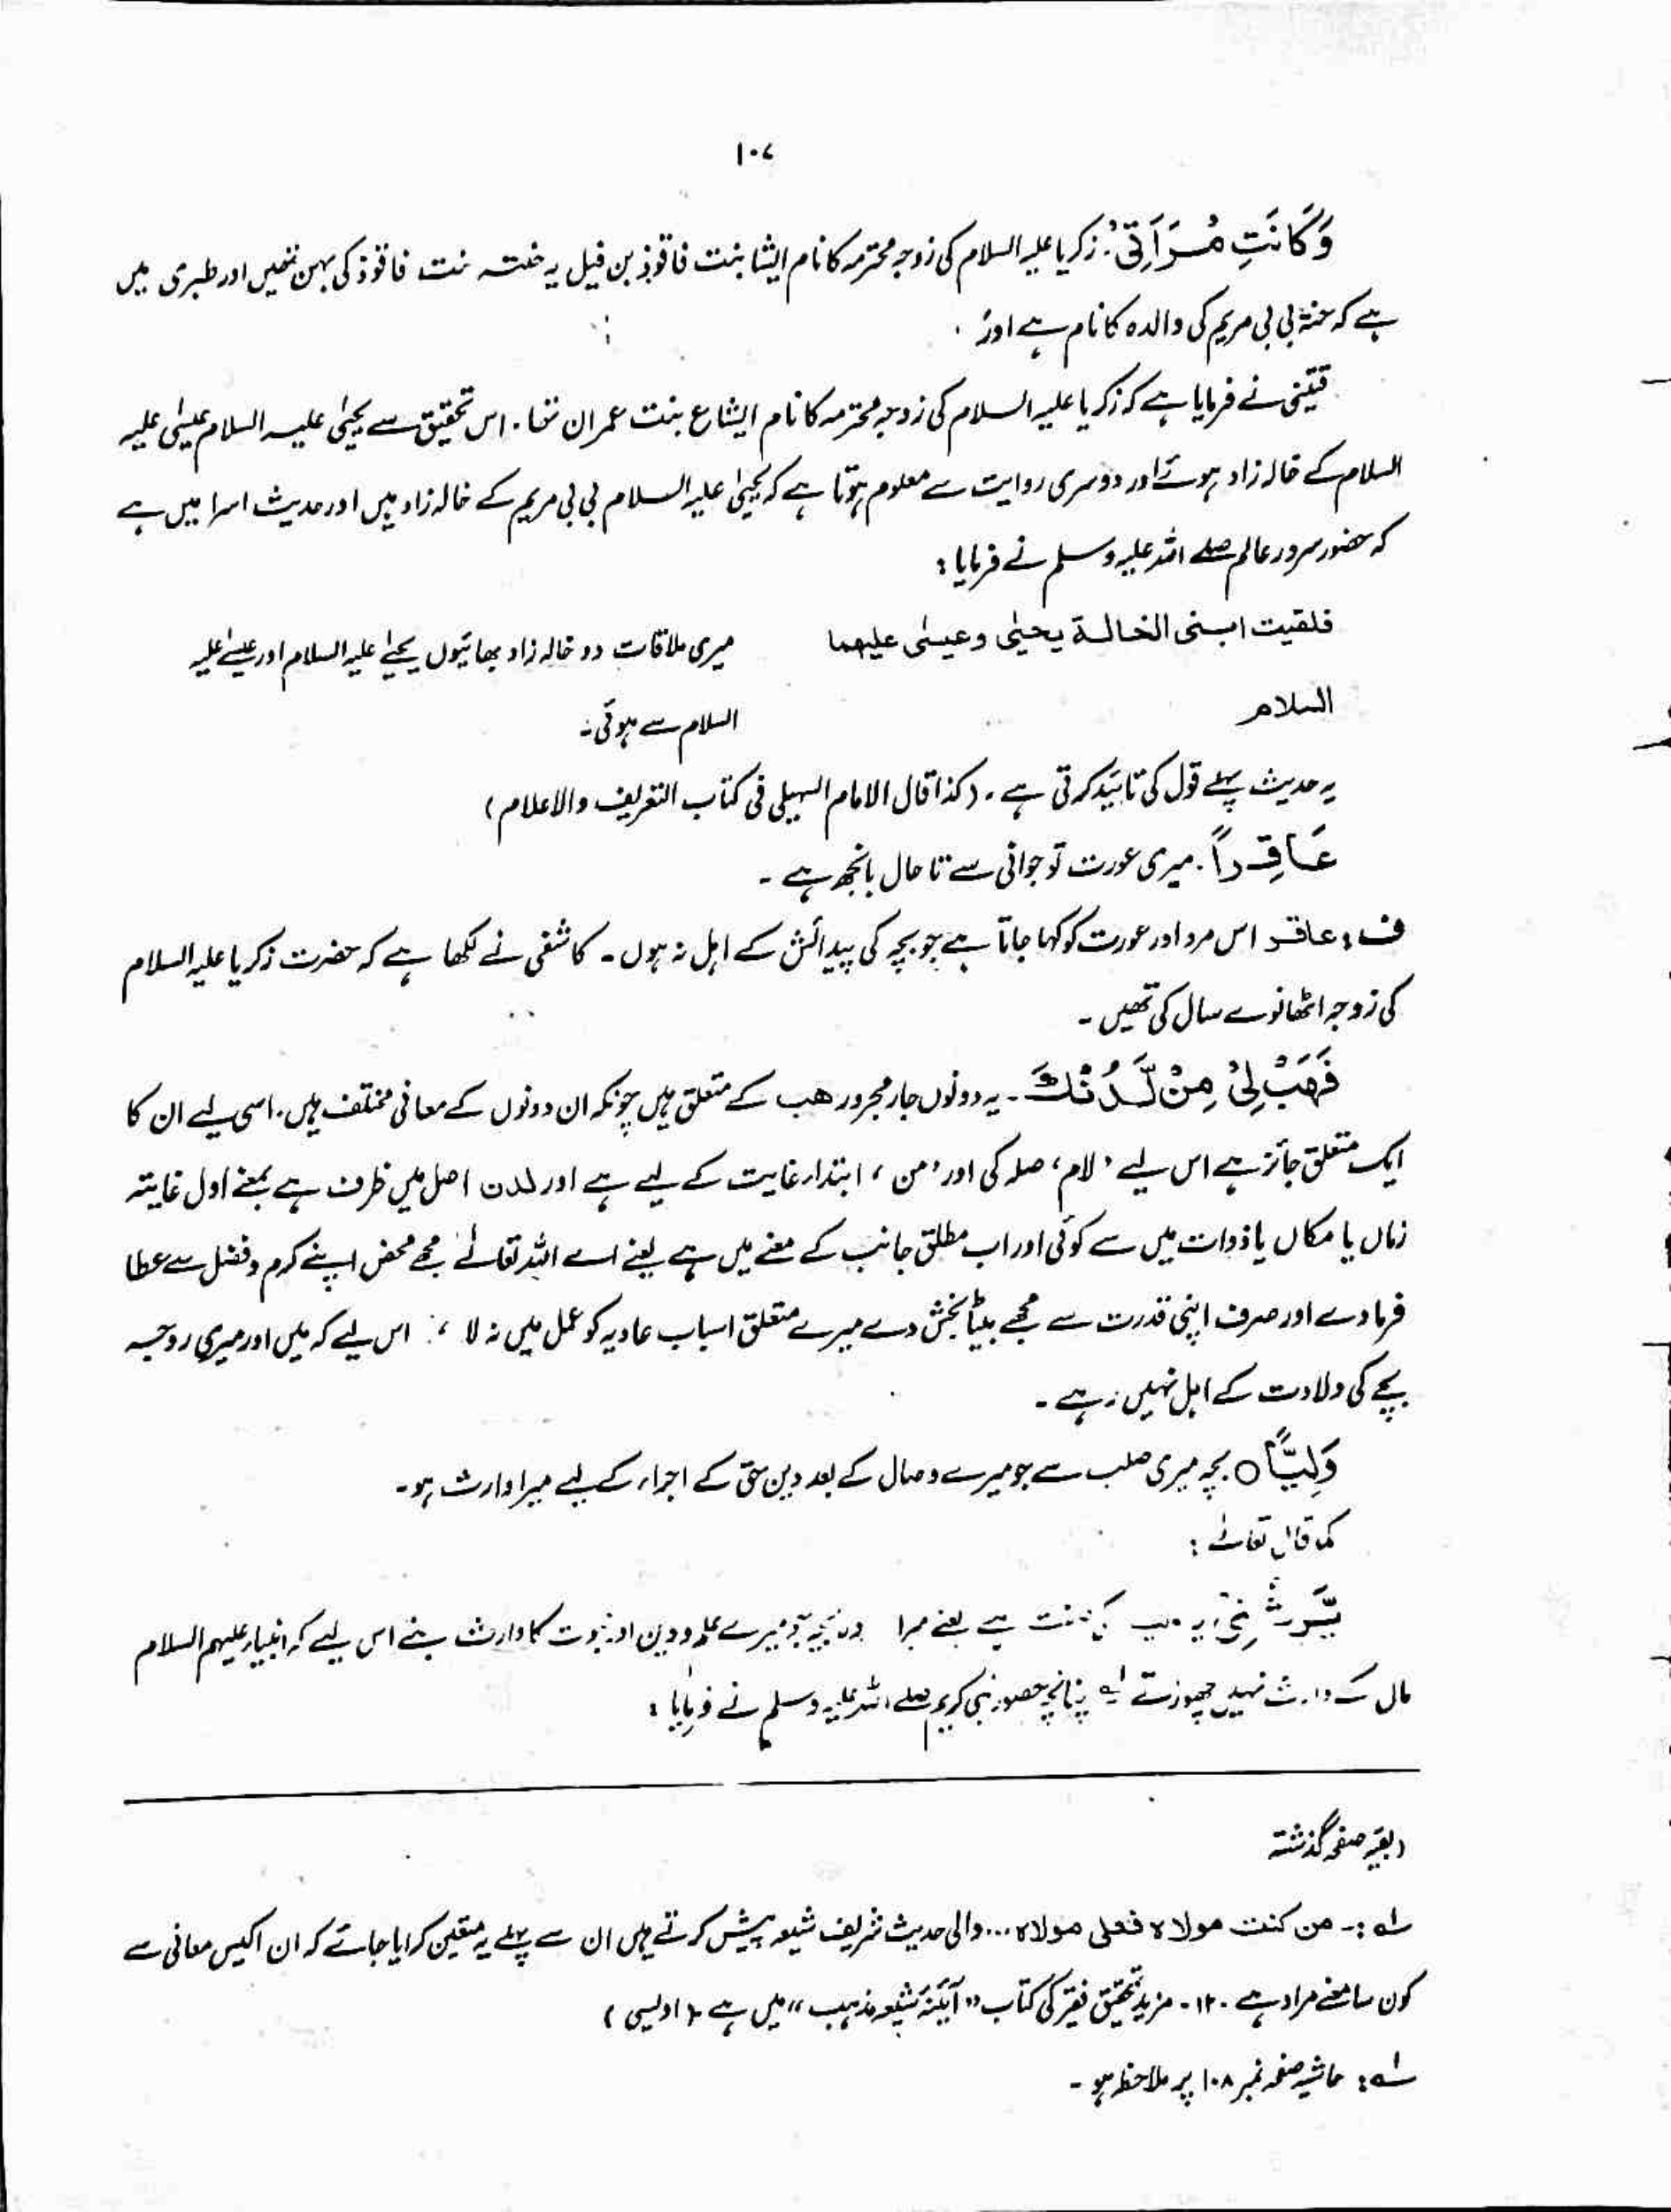 ۱۰۷
وَكَانَتِ مُرَأَتِیْ: زکریا علیہ السلام کی زوجہ محترمہ کا نام ایشا بنت فاقوذ بن فیل یہ حنتہ بنت فاقوذ کی بہن تھیں اور طبری میں
ہے کہ حنۃ بی بی مریم کی والدہ کا نام ہے اور
قتیبی نے فرمایا ہے کہ زکریا علیہ السلام کی زوجہ محترمہ کا نام ایشاع بنت عمران تھا۔ اس تحقیق سے یحییٰ علیہ السلام عیسٰی علیہ
السلام کے خالہ زاد ہوئے اور دوسری روایت سے معلوم ہوتا ہے کہ یحییٰ علیہ السلام بی بی مریم کے خالہ زاد ہیں اور حدیث اسرا میں ہے
کہ حضور سرور عالم صلے اللہ علیہ وسلم نے فرمایا :
فلقیت ابنی الخالۃ یحیٰی وعیسٰی علیھما
السلام
میری ملاقات دو خالہ زاد بھائیوں یحیےٰ علیہ السلام اور عیسےٰ علیہ
السلام سے ہوئی۔
یہ حدیث پہلے قول کی تائید کرتی ہے۔ (کذا قال الامام السہیلی فی کتاب التعریف والاعلام)
عَاقِراً۔ میری عورت تو جوانی سے تا حال بانجھ ہے ۔
ف : عاقر اس مرد اور عورت کو کہا جاتا ہے جو بچہ کی پیدائش کے اہل نہ ہوں ۔ کاشفی نے لکھا ہے کہ حضرت زکریا علیہ السلام
کی زوجہ اٹھانوے سال کی تھیں ۔
فَهَبْ لِیْ مِنْ لَّدُنْكَ ۔ یہ دونوں جار مجرور ھب کے متعلق ہیں چونکہ ان دونوں کے معانی مختلف ہیں۔ اسی لیے ان کا
ایک متعلق جائز ہے اس لیے 'لام' صلہ کی اور 'من' ابتداء غایت کے لیے ہے اور لدن اصل میں ظرف ہے بمعنے اول غایتہ
زماں یا مکاں یا ذوات میں سے کوئی اور اب مطلق جانب کے معنے میں ہے یعنے اے اللہ تعالےٰ مجھے محض اپنے کرم و فضل سے عطا
فرما دے اور صرف اپنی قدرت سے مجھے بیٹا بخش دے میرے متعلق اسباب عادیہ کو عمل میں نہ لا ، اس لیے کہ میں اور میری زوجہ
بچے کی ولادت کے اہل نہیں رہے ۔
وَلِیًّا ○ بچہ میری صلب سے جو میرے وصال کے بعد دین حق کے اجراء کے لیے میرا وارث ہو۔
کما قال تعالےٰ :
یَّرِثُنِیْ یہ کی صفت ہے یعنے میرا جو میرے علم و دین اور نبوت کا وارث بنے اس لیے کہ انبیاء علیہم السلام
مال کے وارث نہیں چھوڑتے لہ چنانچہ حضور نبی کریم صلے اللہ علیہ وسلم نے فرمایا :
(بقیہ صفحہ گذشتہ
لہ :۔ من کنت مولاہ فعلی مولاہ ... والی حدیث شریف شیعہ پیش کرتے ہیں ان سے پہلے یہ متعین کرایا جائے کہ ان اکیس معانی سے
کون سا معنے مراد ہے ۔ ۱۲ ۔ مزید تحقیق فقیر کی کتاب "آئینہ شیعہ مذہب" میں ہے (اویسی)
لہ : حاشیہ صفحہ نمبر ۱۰۸ پر ملاحظہ ہو ۔